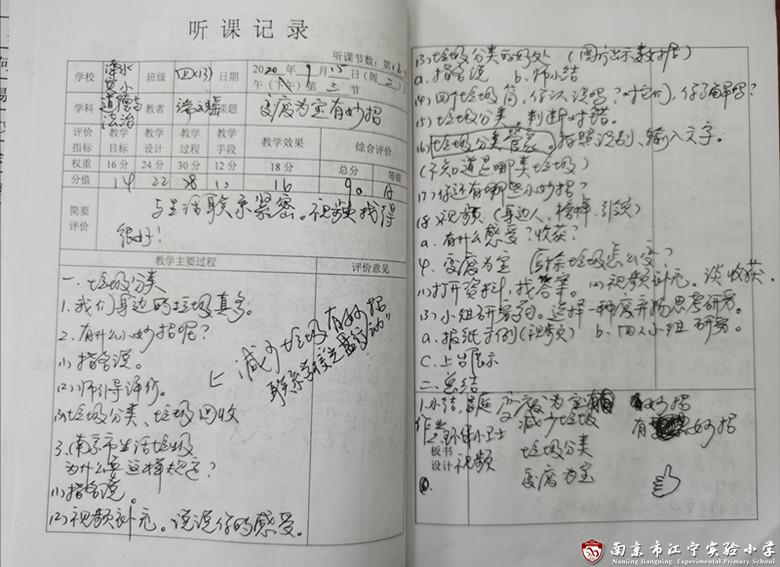 听课记录
听课节数：第12
学校 溧水 实小 班级 四(3) 日期 2020年9月15日(周二)
午(下午)第三节
学科 道德与法治 教者 课题 变废为宝有妙招
评价指标 教学目标 教学设计 教学过程 教学手段 教学效果 综合评价
权重 16分 24分 30分 12分 18分 总分 等级
分值 14 22 28 10 16 90 A
简要评价 与生活联系紧密。视频找得
很好！
教学主要过程 评价意见
一. 垃圾分类
1.我们身边的垃圾真多。
2.有什么小妙招呢？
(1)指名说。
(2)师引导评价。
(3)垃圾分类、垃圾回收
3.南京市生活垃圾
为什么要这样规定？
(1)指名说。
(2)视频补充。说说你的感受。
减少垃圾有妙招
联系学校光盘行动"
(3)垃圾分类的好处 (图片出示数据)
a.指名说 b.师小结
(4)四个垃圾筒，你认识吗？对它们，你了解吗？
(5)垃圾分类，判断对错。
(6)垃圾分类管家。拍照识别、输入文字。
(不知道是哪类垃圾)
(7)你还有哪些小妙招？
(8)视频 (身边人、榜样、引领)
a.有什么感受？收获？
4.变废为宝 厨余垃圾怎么变？
(1)打开资料，找答案。 (2)视频补充。谈收获。
(3)小组研究。选择一种废弃物思考研究。
a.报纸示例(视频) b.四人小组研究。
C.上台展示
二.总结
1.小结.
作业 环保小卫士
板书设计 视频
变废为宝有妙招
减少垃圾 有妙招
垃圾分类
变废为宝
南京市江宁实验小学
Nanjing Jiangning Experimental Primary School